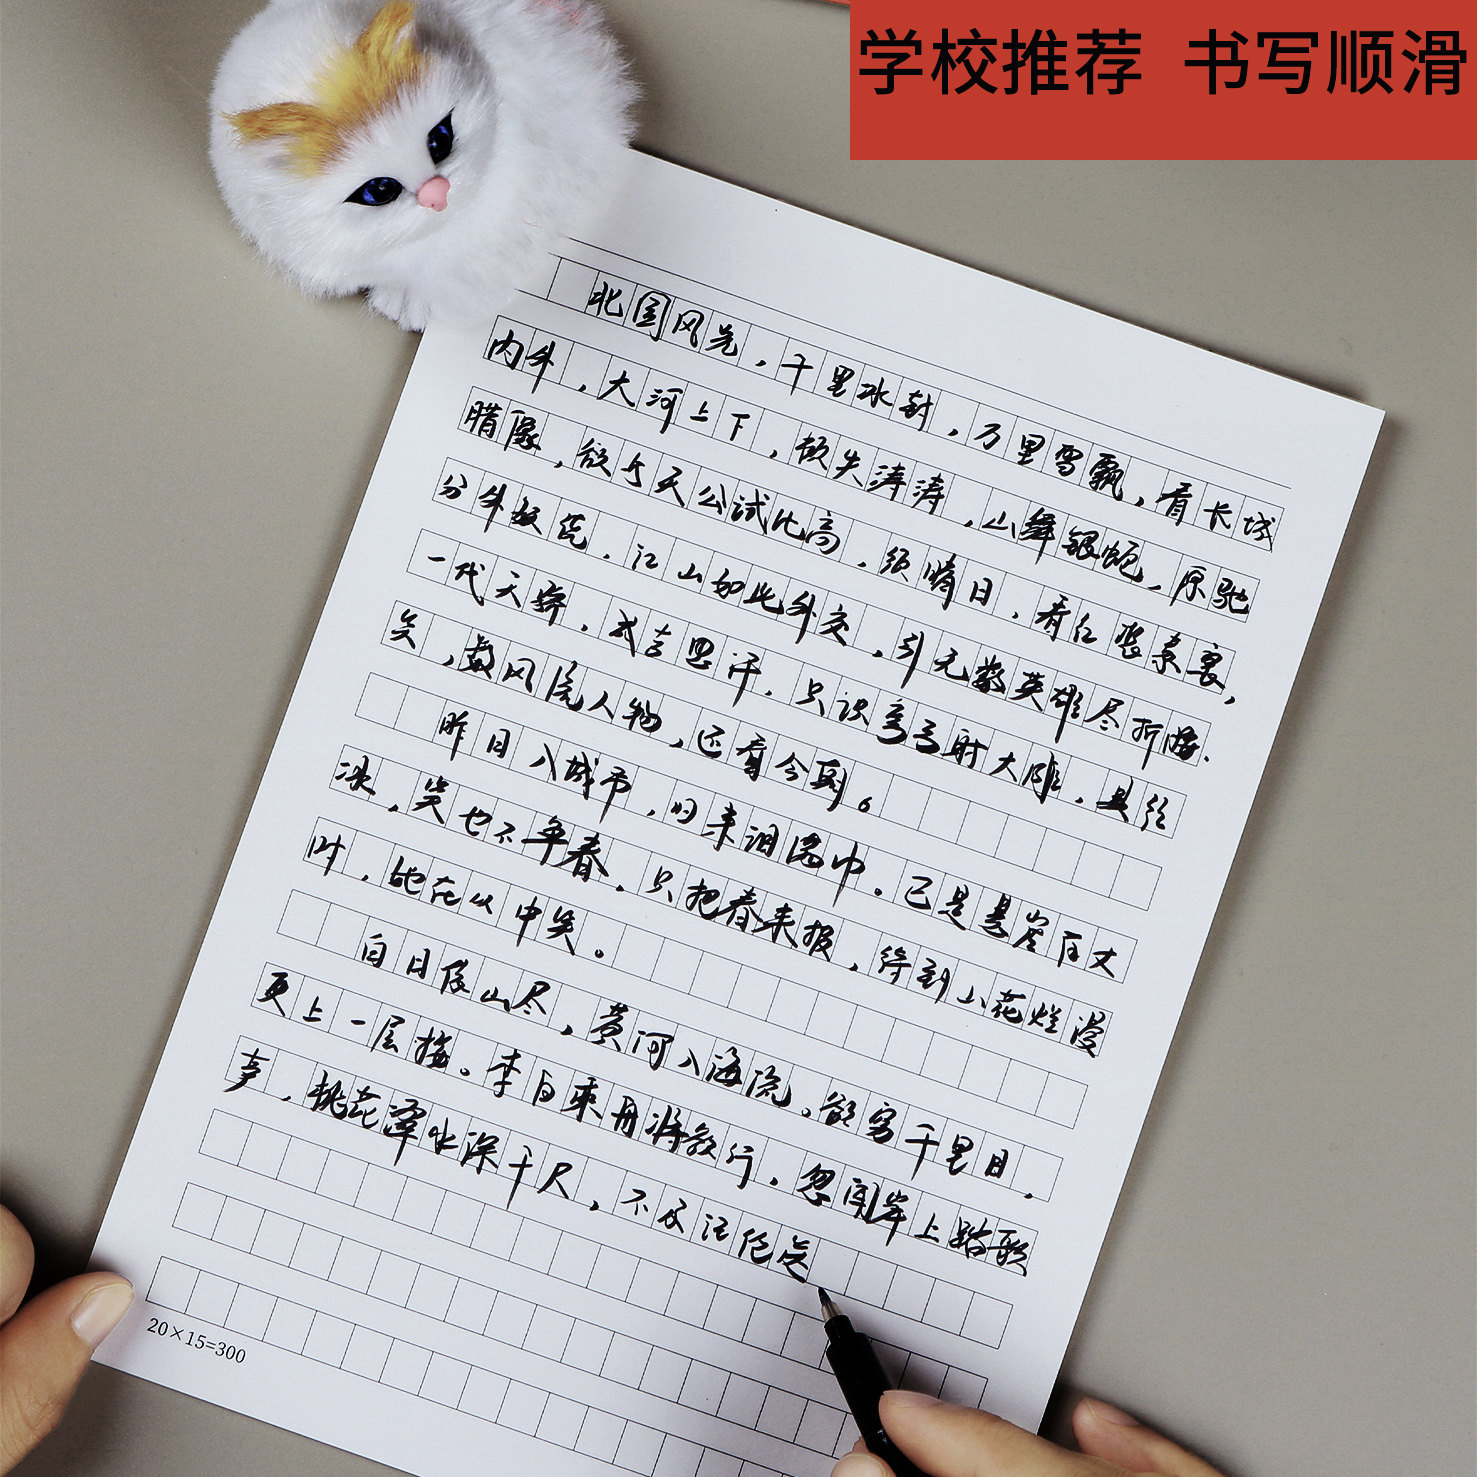 学校推荐 书写顺滑
北国风光，千里冰封，万里雪飘，看长城
内外，大河上下，顿失涛涛，山舞银蛇，原驰
腊象，欲与天公试比高，须晴日，看红装素裹，
分外妖娆．江山如此外交，引无数英雄尽折腰．
一代天骄，成吉思汗．只识弯弓射大雕，具往
矣，数风流人物，还看今朝。
昨日入城市，归来泪满巾。已是悬崖百丈
冰，笑也不争春．只把春来报，待到山花烂漫
时，她在丛中笑。
白日依山尽，黄河入海流。欲穷千里目．
更上一层楼。李白乘舟将欲行，忽闻岸上踏歌
声，桃花潭水深千尺，不及汪伦送
20×15=300